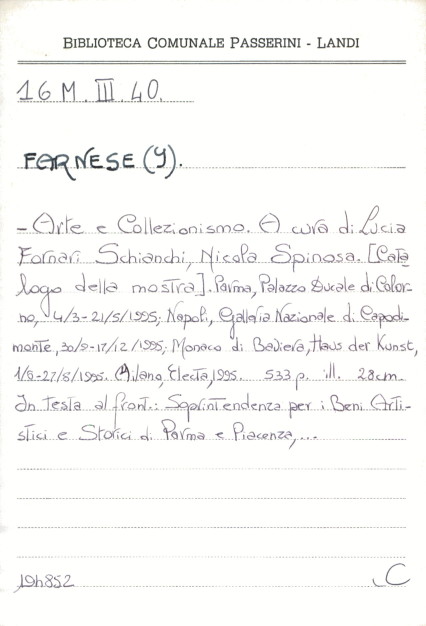 BIBLIOTECA COMUNALE PASSERINI - LANDI
16 M. III. 40.
FARNESE (I).
- Arte e Collezionismo. A cura di Lucia
Fornari Schianchi, Nicola Spinosa. [Cata
logo della mostra]. Parma, Palazzo Ducale di Color-
no, 4/3-21/5/1995; Napoli, Galleria Nazionale di Capodi-
monte, 30/9-17/12/1995; Monaco di Baviera, Haus der Kunst,
1/6-27/8/1995. Milano, Electa, 1995. 533 p. ill. 28cm.
In testa al front.: Soprintendenza per i Beni Arti-
stici e Storici di Parma e Piacenza,...
19h852 C